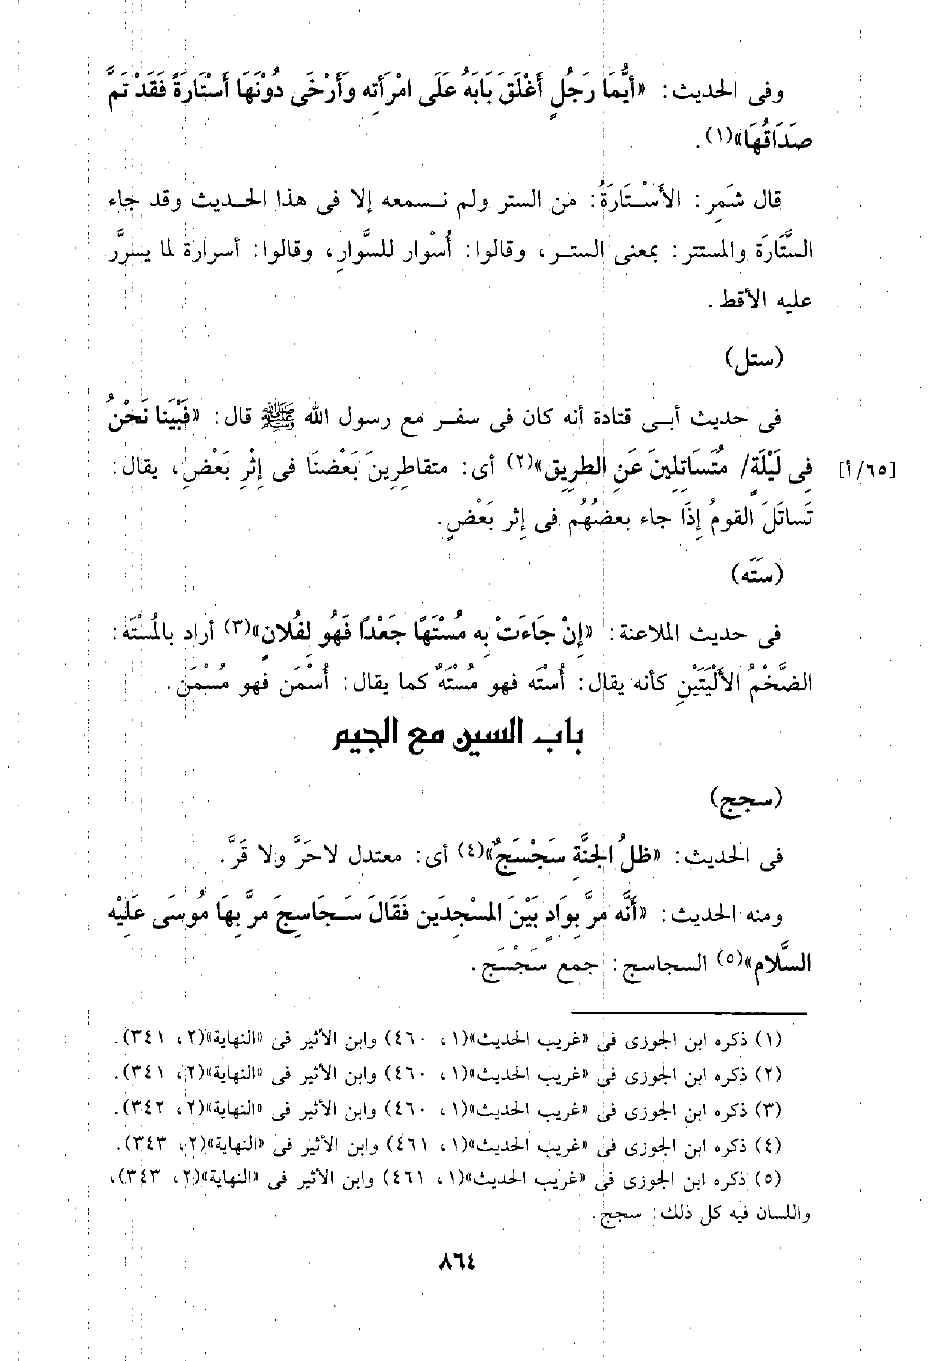 وفى الحديث: «أَيُّمَا رَجُلٍ أَغْلَقَ بَابَهُ عَلَى امْرَأَتِه وَأَرْخَى دُوْنَهَا أَسْتَارَةً فَقَدْ تَمَّ
صَدَاقُهَا»(١).
قال شَمَِر: الأَسْتَارَةُ: من الستر ولم نسمعه إلا فى هذا الحديث وقد جاء
السَّتَارَة والمستتر: بمعنى الستر، وقالوا: أُسْوار للسَّوارِ، وقالوا: أسرارة لما يسرَّر
عليه الأقط.
(ستل)
فى حديث أبى قتادة أنه كان فى سفر مع رسول الله ﷺ قال: «فَبْيَنا نَحْنُ
[٦٥/أ] فِى لَيْلَةٍ/ مُتَسَاتِلينَ عَنِ الطرِيقِ»(٢) أى: متقاطرِينَ بَعْضنَا فى إِثْرِ بَعْضٍ، يقال:
تَساتَلَ القومُ إِذَا جاء بعضُهُم فى إِثر بَعْضٍ.
(سَتَه)
فى حديث الملاعنة: «إِنْ جَاءَتْ بِه مُسْتَهًا جَعْدًا فَهُو لِفُلانٍ»(٣) أراد بالمُسْتَه:
الضَّخْمُ الأَلْيَتَيْنِ كأنه يقال: أُسْتَه فهو مُسْتَهٌ كما يقال: أُسْمَن فهو مُسْمَن.
باب السين مع الجيم
(سجج)
فى الحديث: «ظلُ الجِنَّةِ سَجْسَجٌ»(٤) أى: معتدل لاحَرَّ ولا قَرَّ.
ومنه الحديث: «أَنَّه مرَّ بِوَادٍ بَيْنَ المَسْجِدَين فَقَالَ سَجَاسِجَ مرَّ بِهَا مُوسَى عَلَيْه
السَّلام»(٥) السجاسج: جمع سَجْسَج.
(١) ذكره ابن الجوزى فى «غريب الحديث»(١، ٤٦٠) وابن الأثير فى «النهاية»(٢، ٣٤١).
(٢) ذكره ابن الجوزى فى «غريب الحديث»(١، ٤٦٠) وابن الأثير فى «النهاية»(٢، ٣٤١).
(٣) ذكره ابن الجوزى فى «غريب الحديث»(١، ٤٦٠) وابن الأثير فى «النهاية»(٢، ٣٤٢).
(٤) ذكره ابن الجوزى فى «غريب الحديث»(١، ٤٦١) وابن الأثير فى «النهاية»(٢، ٣٤٣).
(٥) ذكره ابن الجوزى فى «غريب الحديث»(١، ٤٦١) وابن الأثير فى «النهاية»(٢، ٣٤٣)،
واللسان فيه كل ذلك: سجج.
٨٦٤